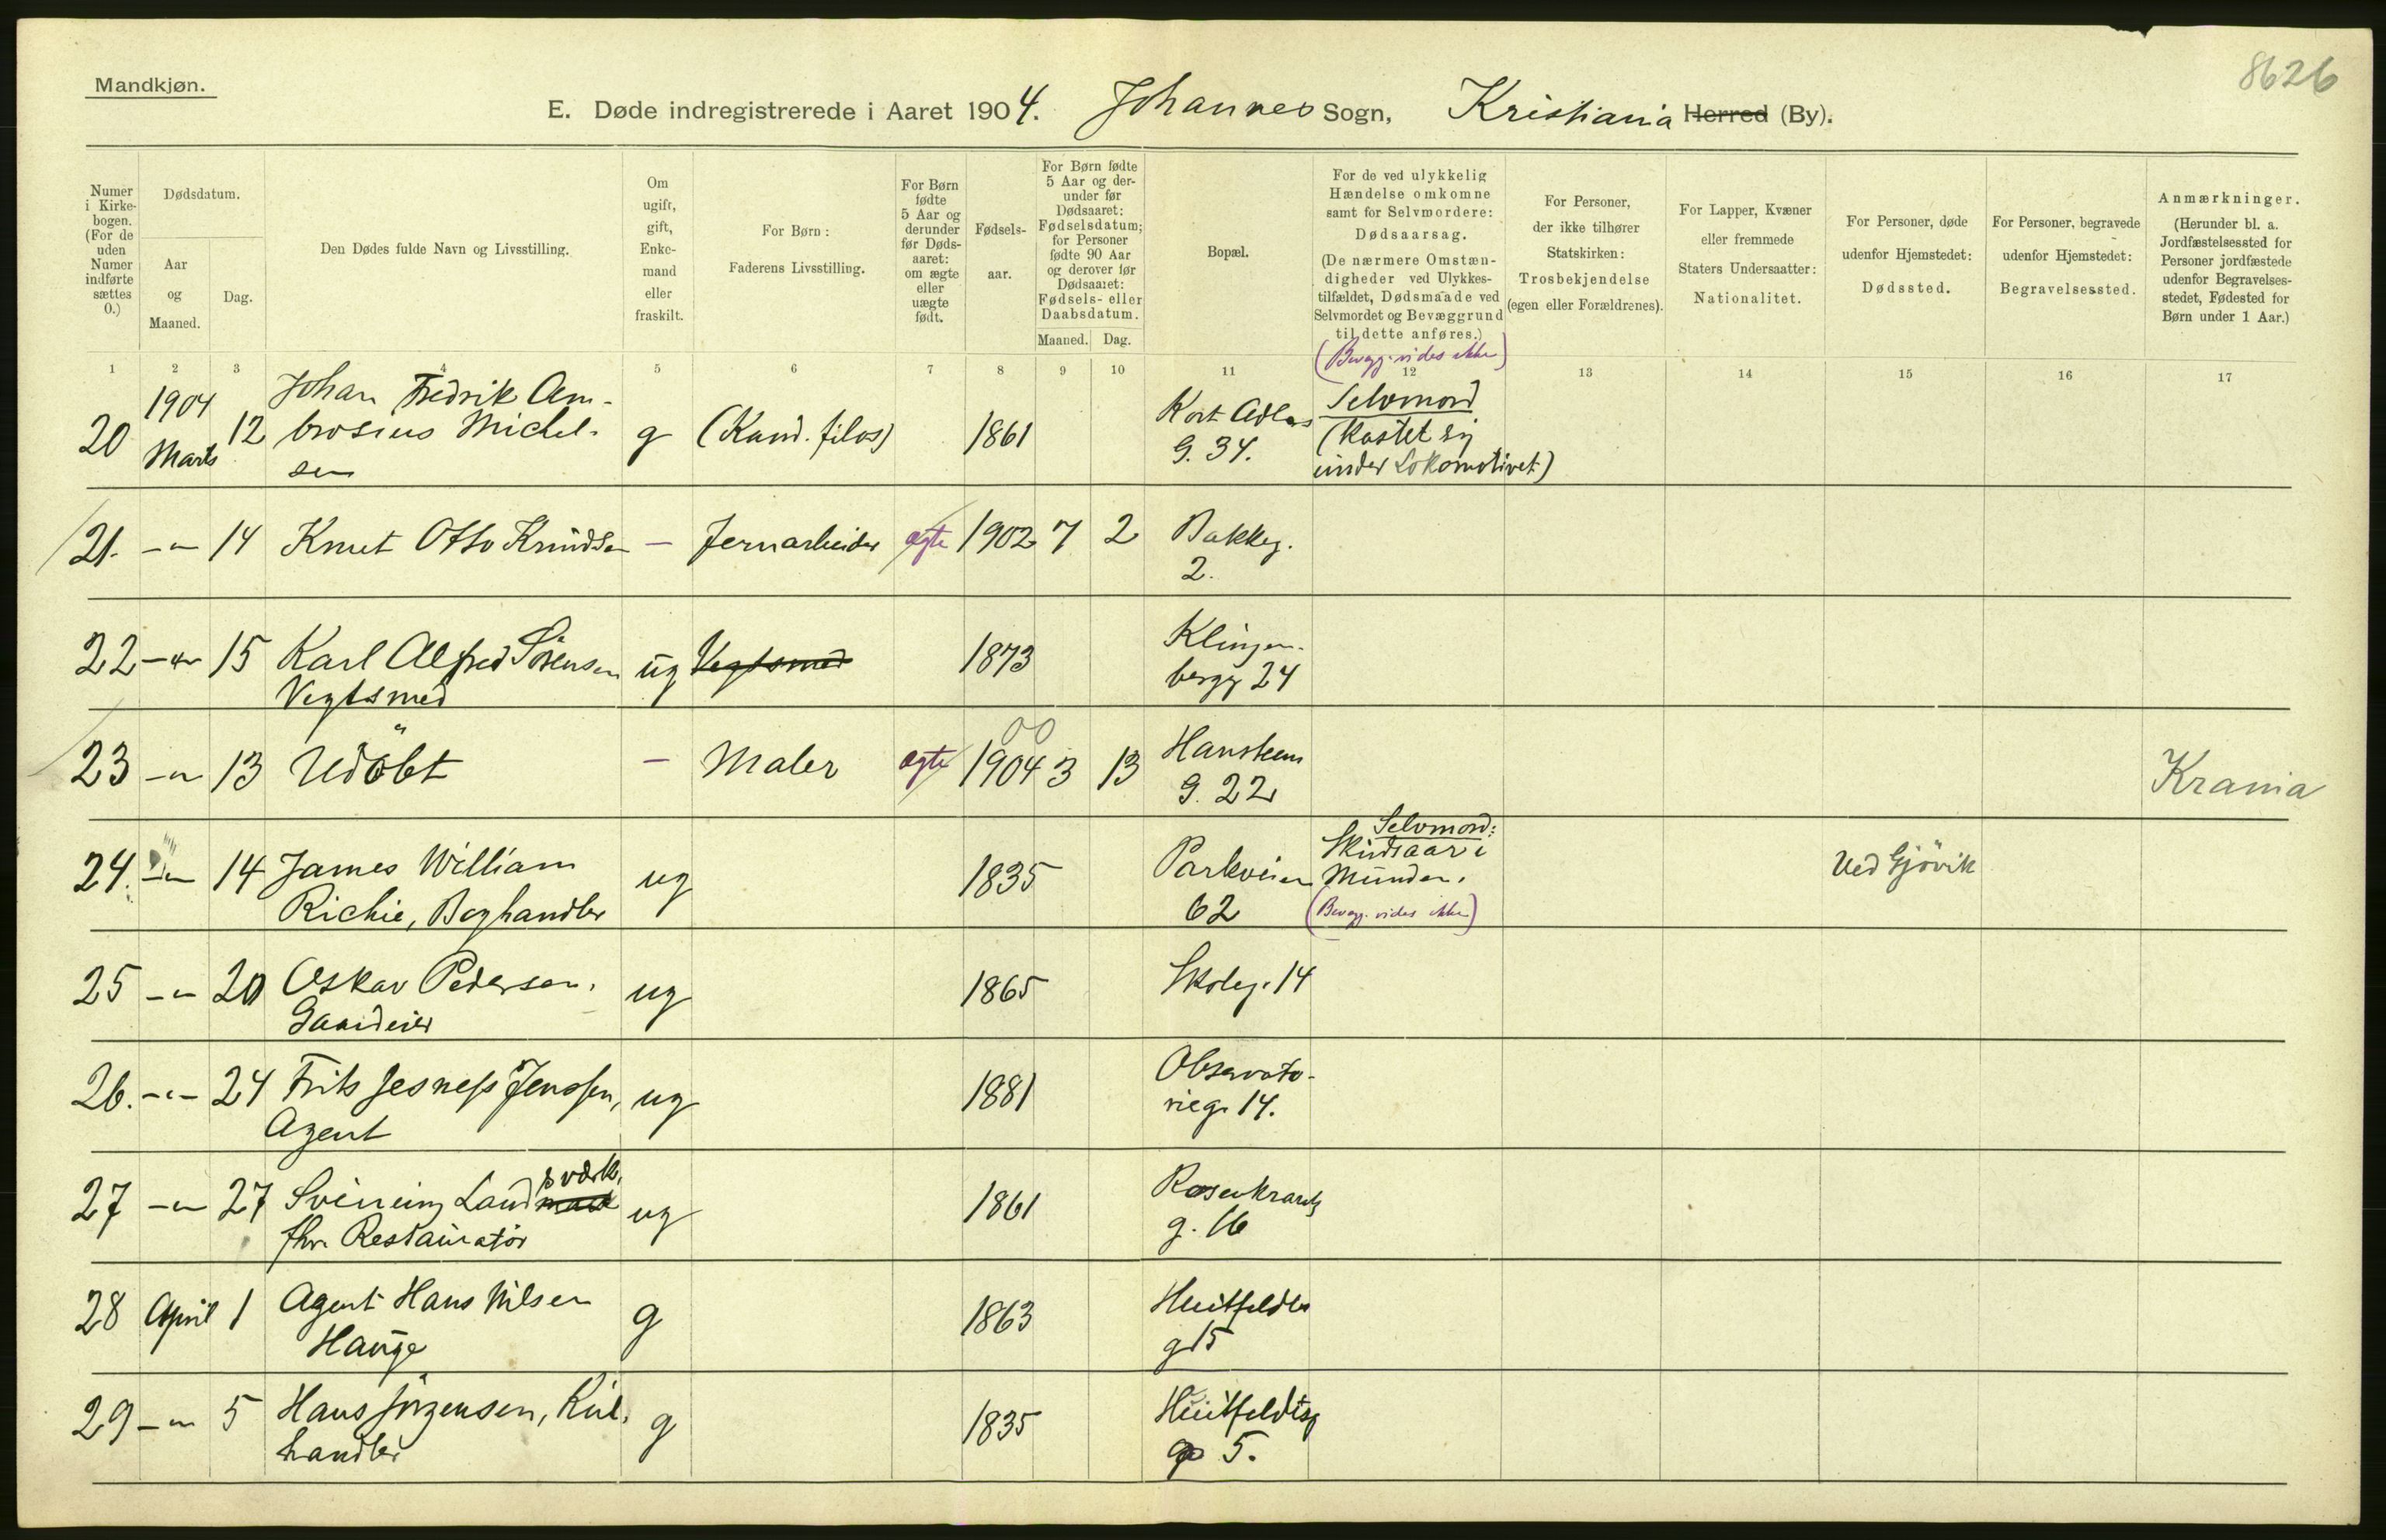 Mandkjøn.
8626
E. Døde indregistrerede i Aaret 1904. Johannes Sogn, Kristiania Herred (By).
Numer i Kirkebogen. (For de uden Numer indførte sættes 0.)
Dødsdatum.
Aar og Maaned.
Dag.
Den Dødes fulde Navn og Livsstilling.
Om ugift, gift, Enkemand eller fraskilt.
For Børn: Faderens Livsstilling.
For Børn fødte 5 Aar og derunder før Dødsaaret: om ægte eller uægte født.
Fødselsaar.
For Børn fødte 5 Aar og derunder før Dødsaaret: Fødselsdatum; for Personer fødte 90 Aar og derover før Dødsaaret: Fødsels- eller Daabsdatum.
Maaned. Dag.
Bopæl.
For de ved ulykkelig Hændelse omkomne samt for Selvmordere: Dødsaarsag. (De nærmere Omstændigheder ved Ulykkestilfældet, Dødsmaade ved Selvmordet og Bevæggrund til dette anføres.)
For Personer, der ikke tilhører Statskirken: Trosbekjendelse (egen eller Forældrenes).
For Lapper, Kvæner eller fremmede Staters Undersaatter: Nationalitet.
For Personer, døde udenfor Hjemstedet: Dødssted.
For Personer, begravede udenfor Hjemstedet: Begravelsessted.
Anmærkninger. (Herunder bl. a. Jordfæstelsessted for Personer jordfæstede udenfor Begravelsesstedet, Fødested for Børn under 1 Aar.)
1 2 3 4 5 6 7 8 9 10 11 12 13 14 15 16 17
(Bevægg. vides ikke)
20 1904 Marts 12 Johan Fredrik Ambrosius Michelsen g (Kand. filos) 1861 Kort Adlers G. 34. Selvmord (Kastet sig under Lokomotivet)
21. -"- 14 Knut Otto Knudsen - Jernarbeider ægte 1902 7 2 Bakkeg. 2.
22 -"- 15 Karl Alfred Sörensen Vegtsmed ug Vegtsmed 1873 Klingenbergg 24
23 -"- 13 Udöbt - Maler ægte 1904 00 3 13 Hansteens G. 22 Krania
24. -"- 14 James William Richie, Boghandler ug 1835 Parkveien 62 Selvmord: Skudsaar i Munden. (Bevægg. vides ikke) Ved Gjövik
25 -"- 20 Oskar Pedersen. Gaardeier ug 1865 Skoleg. 14
26. -"- 24 Frits Jesness Jenssen, Agent ug 1881 Observatorieg. 14.
27 -"- 27 Svenning Landsværk, fhv. Restauratör ug 1861 Rosenkrantz g. 16
28 April 1 Agent Hans Nilsen Hauge g 1863 Huitfeldts g 15
29 -"- 5 Hans Jörgensen, Kulhandler g 1835 Huitfeldtsg 5.